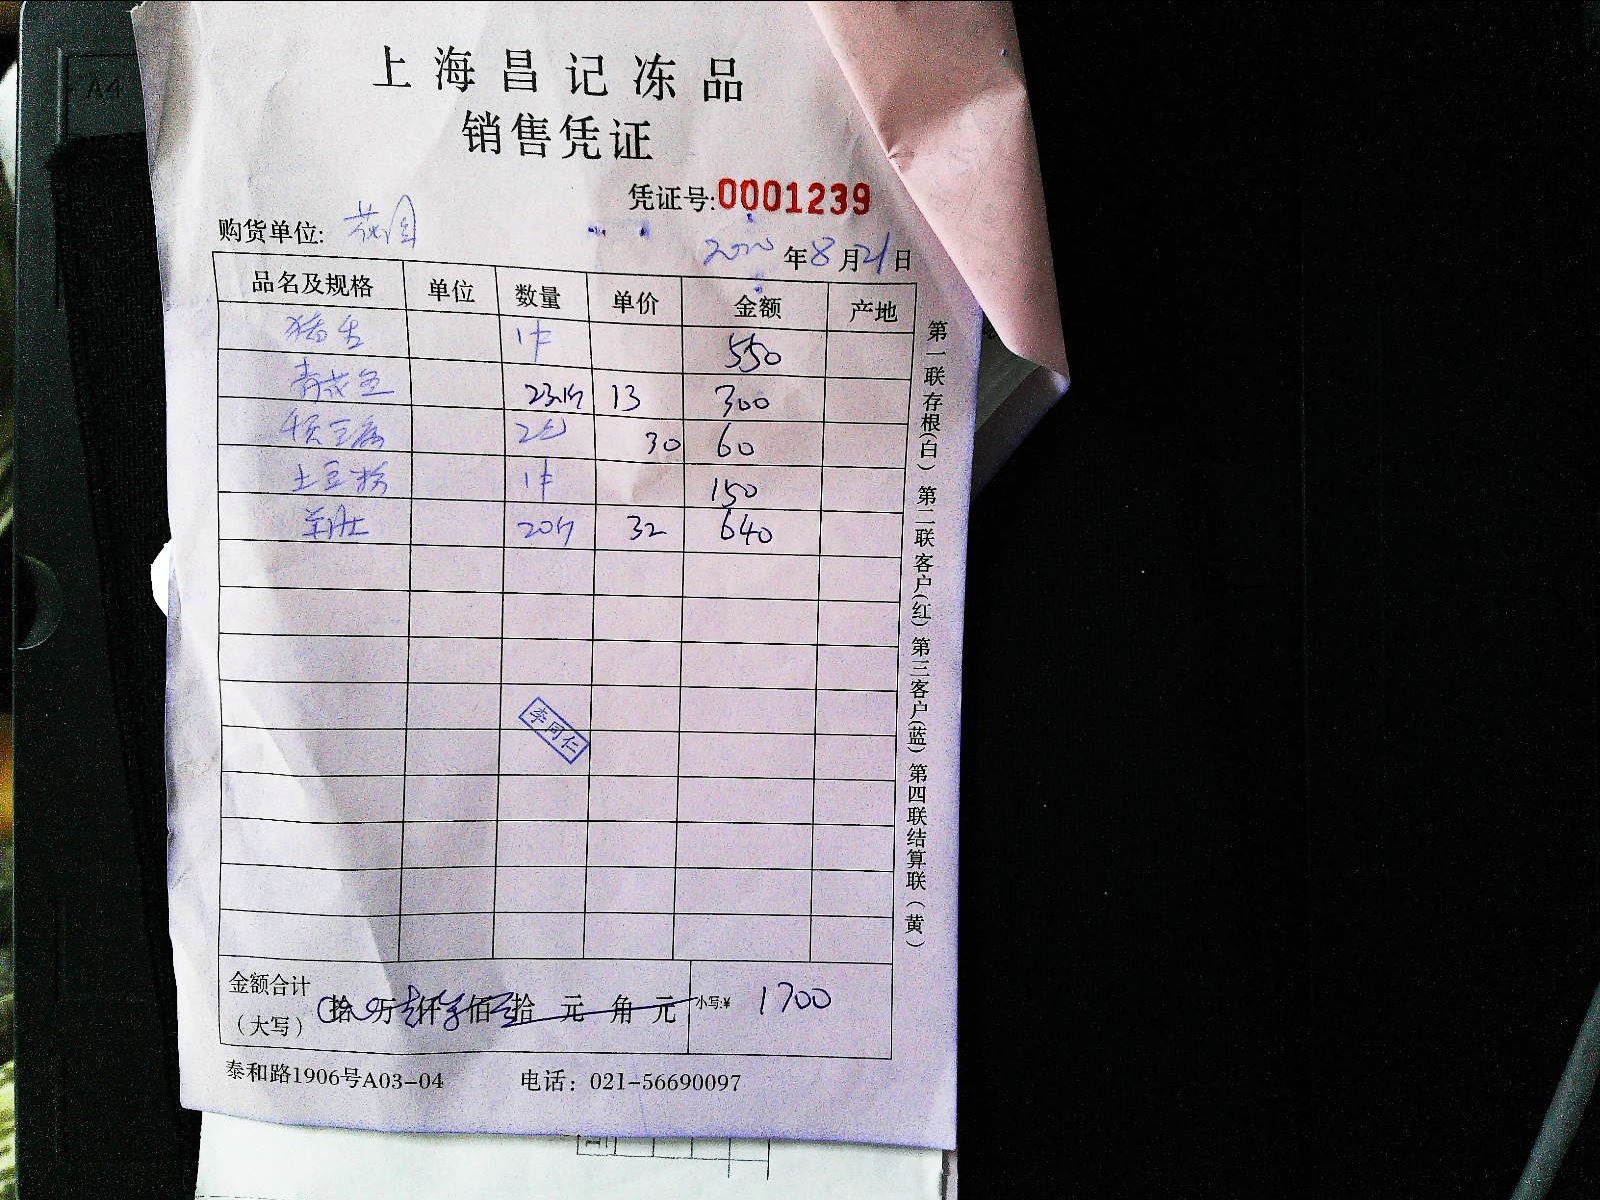 A4
上海昌记冻品
销售凭证
凭证号:0001239
购货单位: 花园
年8月21日
品名及规格 单位 数量 单价 金额 产地
猪舌 1件 550
23斤 13 300
千页豆腐 2包 30 60
土豆粉 1件 150
羊肚 20斤 32 640
李同仁
金额合计
(大写) 拾 万 仟 佰 拾 元 角 元 小写:¥ 1700
泰和路1906号A03-04 电话: 021-56690097
第一联存根(白) 第二联客户(红) 第三客户(蓝) 第四联结算联(黄)